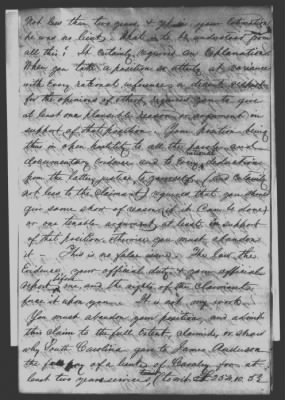 Not less than two years, & yet in your estimation
he was no lieut. What is to be understood from
all this? It certainly requires an explanation.
When you take a position so utterly at variance
with every rational inference a decent respect
for the opinions of others, requires you to give
at least one plausible reason or argument in
support of that position. Your position being
thus in open hostility to all the parole and
documentary evidence and to every deductions
from the latter, justice to yourself (and certainly
not less to the Claimant) requires that you should
give some show of reason (if it can be done)
or one tenable argument at least in support
of that position, otherwise you must abandon
it. This is no false issue. The law, the
evidence, your official duty & your official
report before me, and the rights of the claimants
force it upon you. It is not my work.
You must abandon your position, and admit
this claim to the full extent claimed, or show
why South Carolina gave to James Anderson
the full pay of a lieut of Cavalry for at
least two years services, (to wit £ 252.10.5½